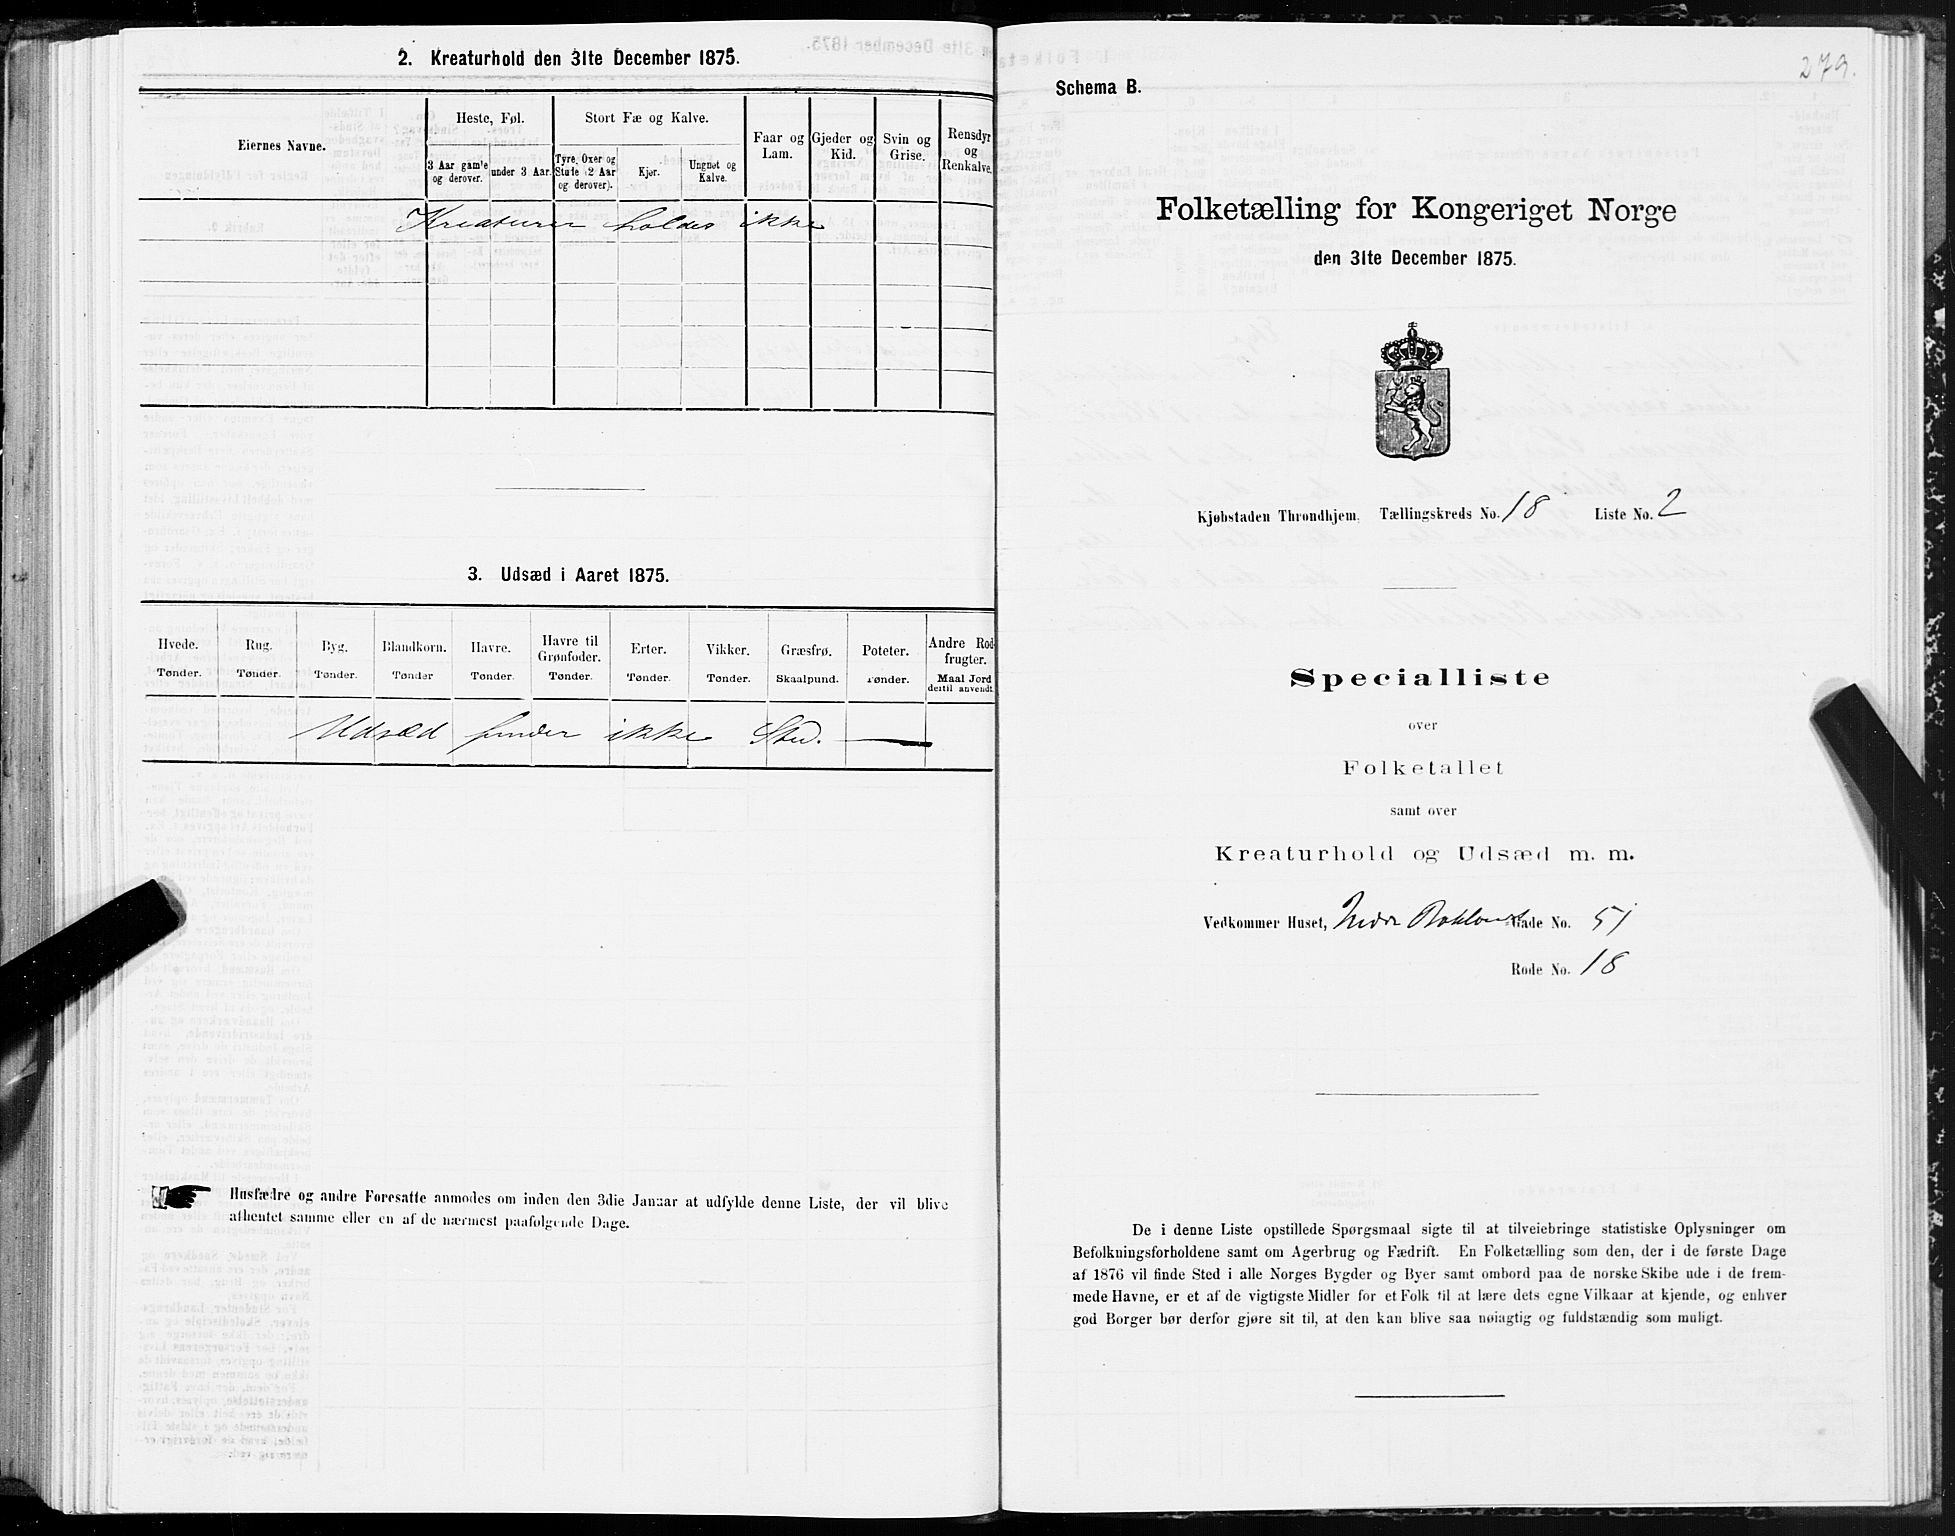 2. Kreaturhold den 31te December 1875.
Eiernes Navne.
Heste, Føl.
Stort Fæ og Kalve.
Faar og Lam.
Gjeder og Kid.
Svin og Grise.
Rensdyr og Renkalve.
3 Aar gamle og derover.
under 3 Aar.
Tyre, Oxer og Stude (2 Aar og derover).
Kjør.
Ungnøt og Kalve.
Kreaturer holdes ikke
3. Udsæd i Aaret 1875.
Hvede.
Rug.
Byg.
Blandkorn.
Havre.
Havre til Grønfoder.
Erter.
Vikker.
Græsfrø.
Poteter.
Andre Rodfrugter.
Tønder.
Tønder.
Tønder.
Tønder
Tønder.
Tønder.
Tønder.
Tønder.
Skaalpund.
Tønder.
Maal Jord dertil anvendt.
Udsæd finder ikke Sted.
Husfædre og andre Foresatte anmodes om inden den 3die Januar at udfylde denne Liste, der vil blive
afhentet samme eller en af de nærmest paafølgende Dage.
279.
Schema B.
Folketælling for Kongeriget Norge
den 31te December 1875.
Kjøbstaden Throndhjem. Tællingskreds No. 18 Liste No. 2
Specialliste
over
Folketallet
samt over
Kreaturhold og Udsæd m. m.
Vedkommer Huset, Nedre Baklands Gade No. 51
Rode No. 18
De i denne Liste opstillede Spørgsmaal sigte til at tilveiebringe statistiske Oplysninger om
Befolkningsforholdene samt om Agerbrug og Fædrift. En Folketælling som den, der i de første Dage
af 1876 vil finde Sted i alle Norges Bygder og Byer samt ombord paa de norske Skibe ude i de frem-
mede Havne, er et af de vigtigste Midler for et Folk til at lære dets egne Vilkaar at kjende, og enhver
god Borger bør derfor gjøre sit til, at den kan blive saa nøiagtig og fuldstændig som muligt.